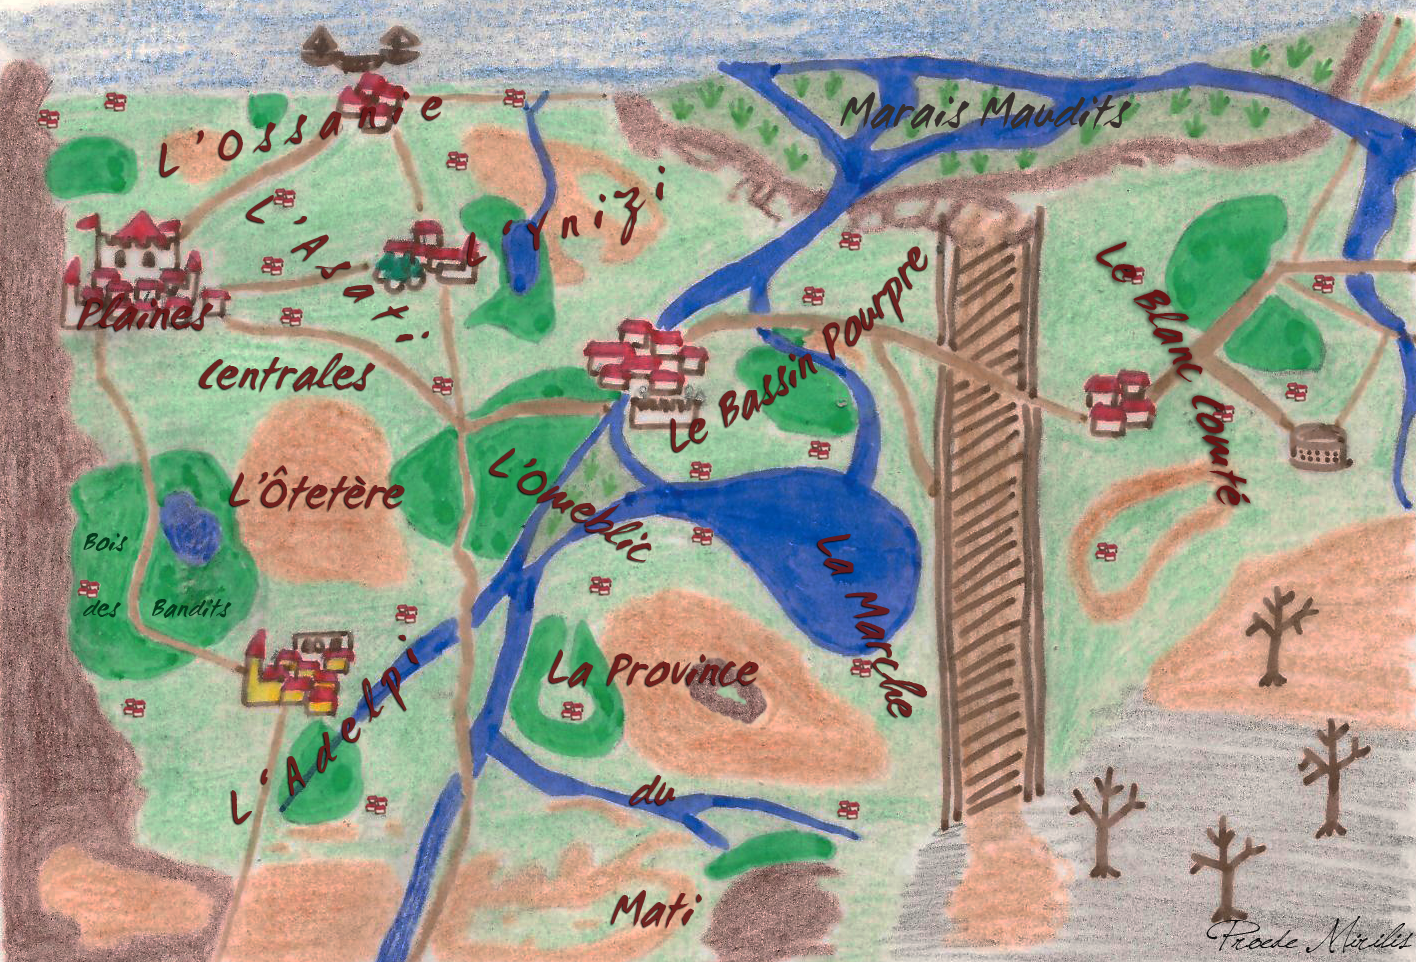 Marais Maudits
L'Ossanie
L'Ynizi
L'Asati
Plaines
Centrales
Le Bassin Pourpre
Le Blanc Comté
L'Ôtetère
L'Omeblic
Bois
des Bandits
La Marche
La Province
L'Adelpi
du
Mati
Proede Mirilis